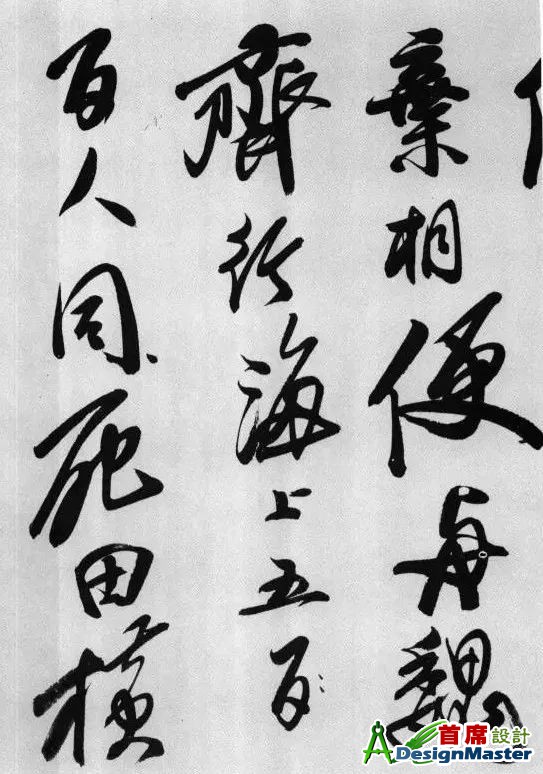 棄相便與魏
齊行海上五百
百人同死田橫
首席設計
DesignMaster